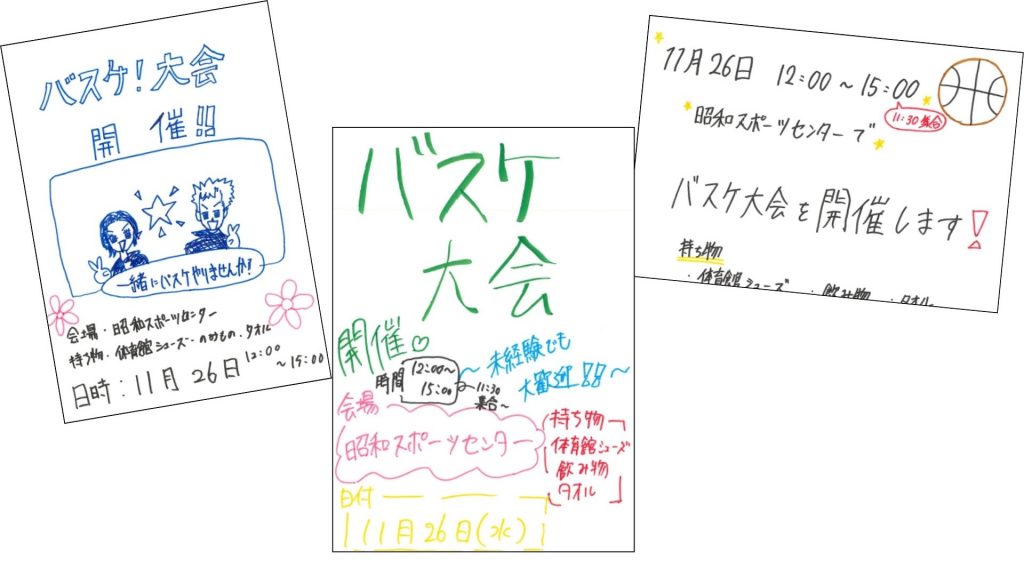 バスケ！大会
開催!!
一緒にバスケやりませんか？
会場・昭和スポーツセンター
持ち物・体育館シューズ・のみもの・タオル
日時：11月26日 12:00
～15:00
バスケ
大会
開催♡
時間
12:00～
15:00
～11:30
集合～
～未経験でも
大歓迎!!～
会場
昭和スポーツセンター
持ち物
体育館シューズ
飲み物
タオル
日付
11月26日(水)
11月26日 12:00～15:00
11:30集合
昭和スポーツセンターで
バスケ大会を開催します！
持ち物
・体育館シューズ ・飲み物 ・タオル